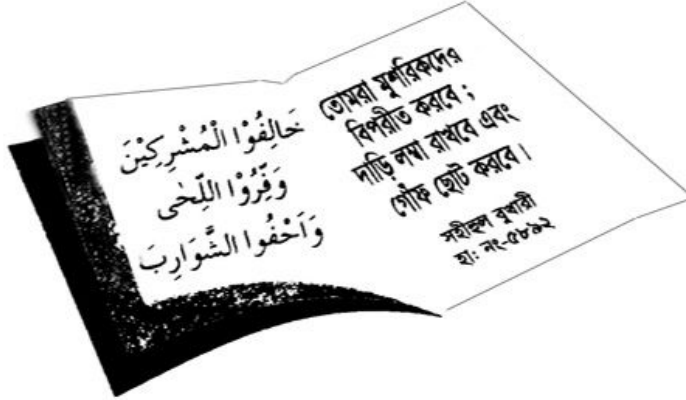 خَالِفُوْا الْمُشْرِكِيْنَ
وَفِّرُوْا اللِّحٰى
وَاَحْفُوا الشَّوَارِبَ
তোমরা মুশরিকদের
বিপরীত করবে ;
দাড়ি লম্বা রাখবে এবং
গোঁফ ছোট করবে।
সহীহুল বুখারী
হাঃ নং-৫৮৯২